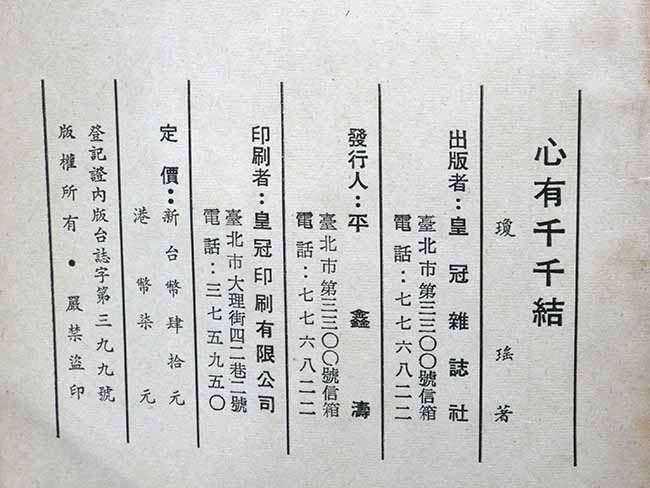 心有千千結
瓊瑤著
出版者：皇冠雜誌社
臺北市第三三〇〇號信箱
電話：七七六八二二
發行人：平鑫濤
臺北市第三三〇〇號信箱
電話：七七六八二二
印刷者：皇冠印刷有限公司
臺北市大理街四二巷二號
電話：三七五九五〇
定價：新台幣肆拾元
港幣柒元
登記證內版台誌字第三九九號
版權所有•嚴禁盜印